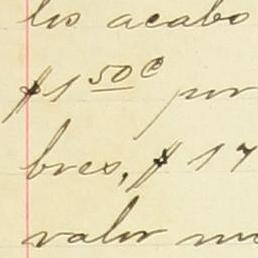 les acabo
$1 50c por
bres, $ 17
valor mo